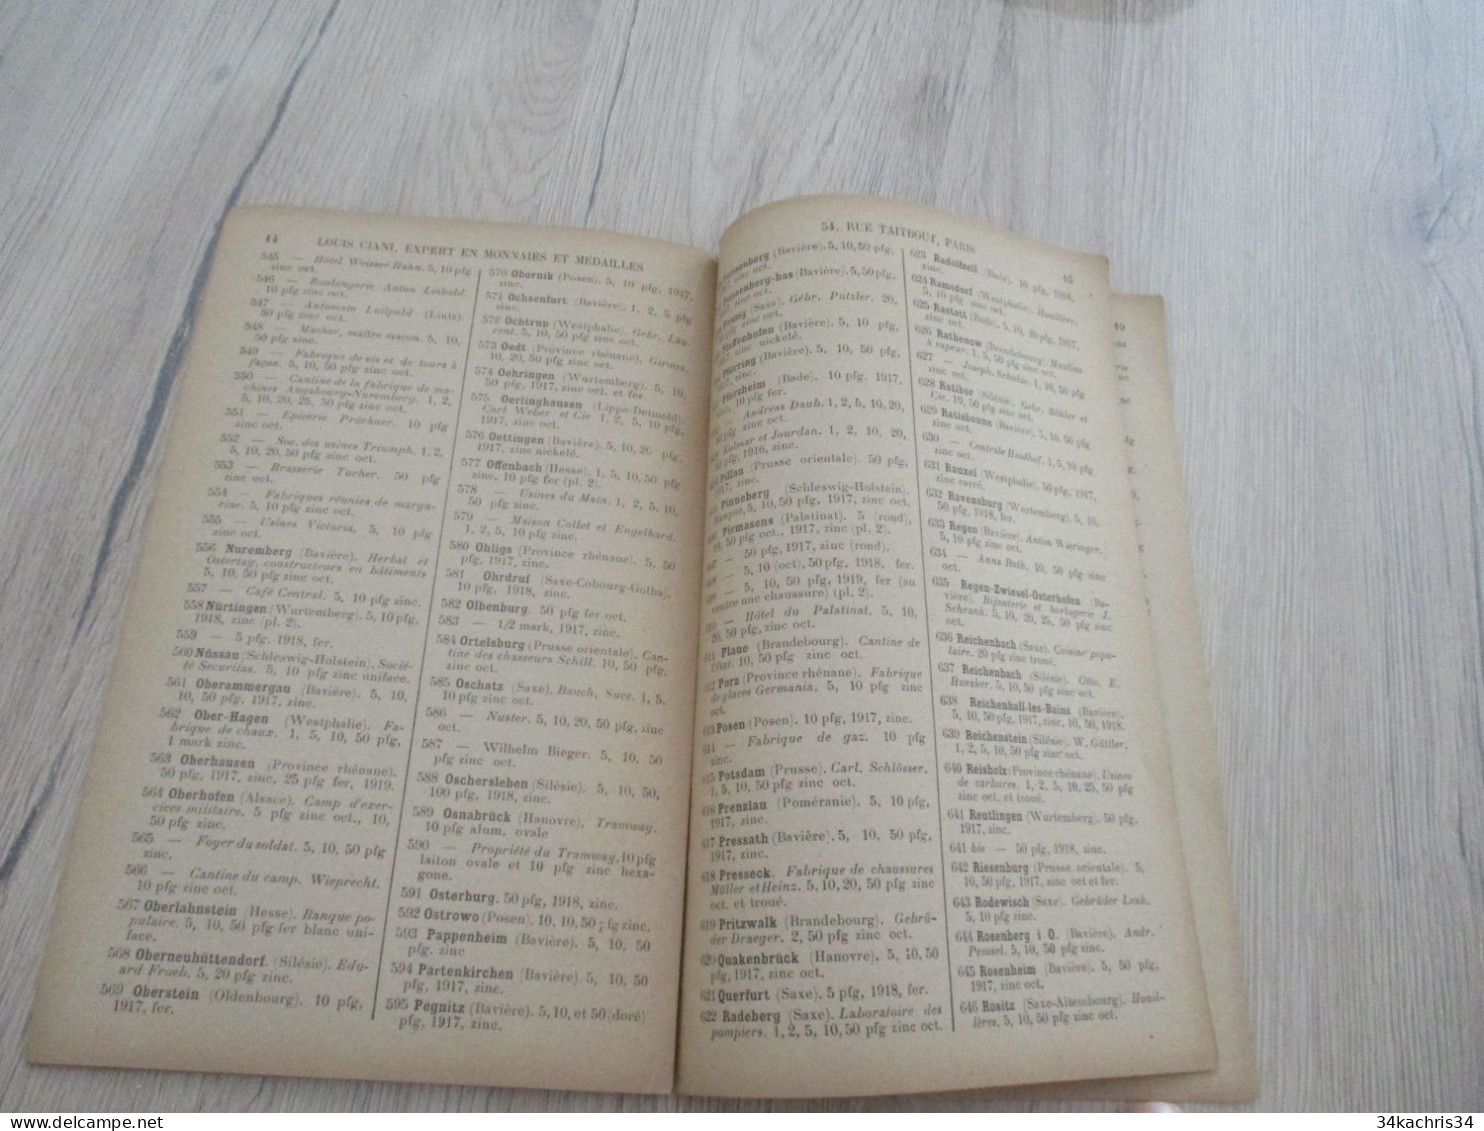 14 LOUIS CIANI, EXPERT EN MONNAIES ET MÉDAILLES
545 — Hôtel Weisser Hahn. 5, 10 pfg
zinc oct.
546 — Boulangerie Anton Leibold.
10 pfg zinc oct.
547 — Automate Luitpold (Lintz).
50 pfg zinc oct.
548 — Macher, maître maçon. 5, 10,
50 pfg zinc.
549 — Fabrique de vis et de tours à
façon. 5, 10, 50 pfg zinc oct.
550 — Cantine de la fabrique de ma-
chines Augsbourg-Nuremberg. 1, 2,
5, 10, 20, 25, 50 pfg zinc oct.
551 — Epicerie Prockner. 10 pfg
zinc oct.
552 — Soc. des usines Triumph. 1, 2,
5, 10, 20, 50 pfg zinc oct.
553 — Brasserie Tucher. 50 pfg
zinc oct.
554 — Fabriques réunies de marga-
rine. 5, 10 pfg zinc oct.
555 — Usines Victoria. 5, 10 pfg
zinc oct.
556 Nuremberg (Bavière). Herbst et
Ostertag, constructeurs en bâtiments
5, 10, 50 pfg zinc oct.
557 — Café Central. 5, 10 pfg zinc.
558 Nürtingen (Wurtemberg). 5, 10 pfg,
1918, zinc (pl. 2).
559 — 5 pfg. 1918, fer.
560 Nüssau (Schleswig-Holstein). Socié-
té Securitas. 5, 10 pfg zinc uniface.
561 Oberammergau (Bavière). 5, 10,
10, 50 pfg, 1917, zinc.
562 Ober-Hagen (Westphalie). Fa-
brique de chaux. 1, 5, 10, 50 pfg,
1 mark zinc.
563 Oberhausen (Province rhénane).
50 pfg. 1917, zinc, 25 pfg fer, 1919.
564 Oberhofen (Alsace). Camp d'exer-
cices militaire. 5 pfg zinc oct., 10,
50 pfg zinc.
565 — Foyer du soldat. 5, 10, 50 pfg
zinc.
566 — Cantine du camp. Wieprecht.
10 pfg zinc oct.
567 Oberlahnstein (Hesse). Banque po-
pulaire. 5, 10, 50 pfg fer blanc uni-
face.
568 Oberneuhüttendorf. (Silésie). Edu-
ard Froeh. 5, 20 pfg zinc.
569 Oberstein (Oldenbourg). 10 pfg,
1917, fer.
570 Obornik (Posen). 5, 10 pfg, 1917,
zinc oct.
571 Ochsenfurt (Bavière). 1, 2, 5 pfg
zinc.
572 Ochtrup (Westphalie). Gebr. Lau-
rent. 5, 10, 50 pfg zinc oct.
573 Oedt (Province rhénane). Girmes.
10, 20, 50 pfg zinc oct.
574 Oehringen (Wurtemberg). 5, 10,
50 pfg, 1917, zinc oct. et fer.
575 Oerlinghausen (Lippe-Detmold).
Carl Weber et Cie 1, 2, 5, 10 pfg,
1917, zinc oct.
576 Oettingen (Bavière). 5, 10, 20 pfg,
1917, zinc nickelé.
577 Offenbach (Hesse). 1, 5, 10, 50 pfg
zinc, 10 pfg fer (pl. 2).
578 — Usines du Main. 1, 2, 5, 10,
50 pfg zinc.
579 — Maison Collet et Engelhard.
1, 2, 5, 10 pfg zinc.
580 Ohligs (Province rhénane). 5, 50
pfg, 1917, zinc.
581 Ohrdruf (Saxe-Cobourg-Gotha).
10 pfg, 1918, zinc.
582 Olbenburg. 50 pfg fer oct.
583 — 1/2 mark, 1917, zinc.
584 Ortelsburg (Prusse orientale). Can-
tine des chasseurs Schill. 10, 50 pfg,
zinc.
585 Oschatz (Saxe). Bauch, Succ. 1, 5,
10 pfg zinc oct.
586 — Nuster. 5, 10, 20, 50 pfg, zinc
oct.
587 — Wilhelm Bieger. 5, 10, 50
pfg zinc oct.
588 Oschersleben (Silésie). 5, 10, 50,
100 pfg, 1918, zinc.
589 Osnabrück (Hanovre). Tramway.
10 pfg alum. ovale
590 — Propriété du Tramway, 10 pfg
laiton ovale et 10 pfg zinc hexa-
gone.
591 Osterburg. 50 pfg, 1918, zinc.
592 Ostrowo (Posen). 10, 10, 50 pfg zinc.
593 Pappenheim (Bavière). 5, 10, 50
pfg. zinc
594 Partenkirchen (Bavière). 5, 10, 50
pfg, 1917, zinc.
595 Pegnitz (Bavière). 5, 10, et 50 (doré)
pfg, 1917, zinc.
54, RUE TAITBOUT, PARIS 15
Peissenberg (Bavière). 5, 10, 50 pfg,
zinc oct.
Peissenberg-bas (Bavière). 5, 50 pfg,
zinc oct.
Penig (Saxe). Gebr. Putzler. 20,
50 pfg zinc oct.
Pfaffenhofen (Bavière). 5, 10 pfg,
zinc nickelé.
Pförring (Bavière). 5, 10, 50 pfg,
1917, zinc.
Pforzheim (Bade). 10 pfg. 1917,
zinc, 10 pfg fer.
— Andreas Daub. 1, 2, 5, 10, 20,
50 pfg zinc oct.
Kolmar et Jourdan. 1, 2, 10, 20,
50 pfg, 1916, zinc.
Pillau (Prusse orientale). 50 pfg,
1917, zinc.
Pinneberg (Schleswig-Holstein).
Banque, 5, 10, 50 pfg, 1917, zinc oct.
Pirmasens (Palatinat). 5 (rond),
10, 50 pfg oct., 1917, zinc (pl. 2).
— 50 pfg, 1917, zinc (rond).
— 5, 10 (oct), 50 pfg, 1918, fer.
— 5, 10, 50 pfg, 1919, fer (au
centre une chaussure) (pl. 2).
— Hôtel du Palatinat. 5, 10,
20, 50 pfg, zinc oct.
611 Plaue (Brandebourg). Cantine de
l'état. 10, 50 pfg zinc oct.
612 Porz (Province rhénane). Fabrique
de glaces Germania. 5, 10 pfg zinc
oct.
613 Posen (Posen). 10 pfg, 1917, zinc.
614 — Fabrique de gaz. 10 pfg
zinc.
615 Potsdam (Prusse). Carl. Schlösser.
1, 5, 10, 50 pfg zinc oct.
616 Prenzlau (Poméranie). 5, 10 pfg,
1917, zinc.
617 Pressath (Bavière). 5, 10, 50 pfg,
1917, zinc.
618 Presseck. Fabrique de chaussures
Müller et Heinz. 5, 10, 20, 50 pfg zinc
oct. et troué.
619 Pritzwalk (Brandebourg). Gebrü-
der Draeger. 2, 50 pfg zinc oct.
620 Quakenbrück (Hanovre). 5, 10, 50
pfg, 1917, zinc oct.
621 Querfurt (Saxe). 5 pfg, 1918, fer.
622 Radeberg (Saxe). Laboratoire des
pompiers. 1, 2, 5, 10, 50 pfg zinc oct.
623 Radolfzell (Bade). 10 pfg, 1918,
zinc.
624 Ramsdorf (Westphalie). Houillère.
5, 10 pfg zinc oct.
625 Rastatt (Bade). 5, 10, 20 pfg, 1917,
zinc oct.
626 Rathenow (Brandebourg). Moulins
à vapeur. 1, 5, 50 pfg zinc oct.
627 — Joseph. Schulze. 1, 10, 50 pfg
zinc oct.
628 Ratibor (Silésie). Gebr. Böhler et
Cie. 10, 50 pfg zinc oct.
629 Ratisbonne (Bavière). 5, 10, 50 pfg
zinc oct.
630 — Centrale Hadhof. 1, 5, 10 pfg
zinc oct.
631 Rauxel (Westphalie). 50 pfg, 1917,
zinc carré.
632 Ravensburg (Wurtemberg). 5, 10,
50 pfg, 1918, fer.
633 Regen (Bavière). Anton Wieringer.
5, 10 pfg zinc oct.
634 — Anna Rath. 10, 50 pfg zinc
oct.
635 Regen-Zwiesel-Osterhofen (Ba-
vière). Bijouterie et horlogerie J.
Schrank. 5, 10, 20, 25, 50 pfg zinc
oct.
636 Reichenbach (Saxe). Cuisine popu-
laire. 20 pfg zinc troué.
637 Reichenbach (Silésie). Otto. E.
Huesker. 5, 10, 50 pfg zinc oct.
638 Reichenhall-les-Bains (Bavière).
5, 10, 50 pfg, 1917, zinc, 10, 50, 1918.
639 Reichenstein (Silésie). W. Güttler.
1, 2, 5, 10, 50 pfg zinc oct.
640 Reisholz (Province rhénane). Usines
de carbures. 1, 2, 5, 10, 25, 50 pfg
zinc oct. et troué.
641 Reutlingen (Wurtemberg). 50 pfg,
1917, zinc.
641 bis — 50 pfg, 1918, zinc.
642 Riesenburg (Prusse orientale). 5,
10, 50 pfg, 1917, zinc oct et fer.
643 Rodewisch (Saxe). Gebrüder Lenk.
5, 10 pfg zinc.
644 Rosenberg i O. (Bavière). Andr.
Pemsel. 5, 10, 50 pfg zinc oct.
645 Rosenheim (Bavière). 5, 50 pfg,
1917, zinc oct.
646 Rositz (Saxe-Altembourg). Houil-
lères. 5, 10, 50 pfg, zinc oct.
34kachris34